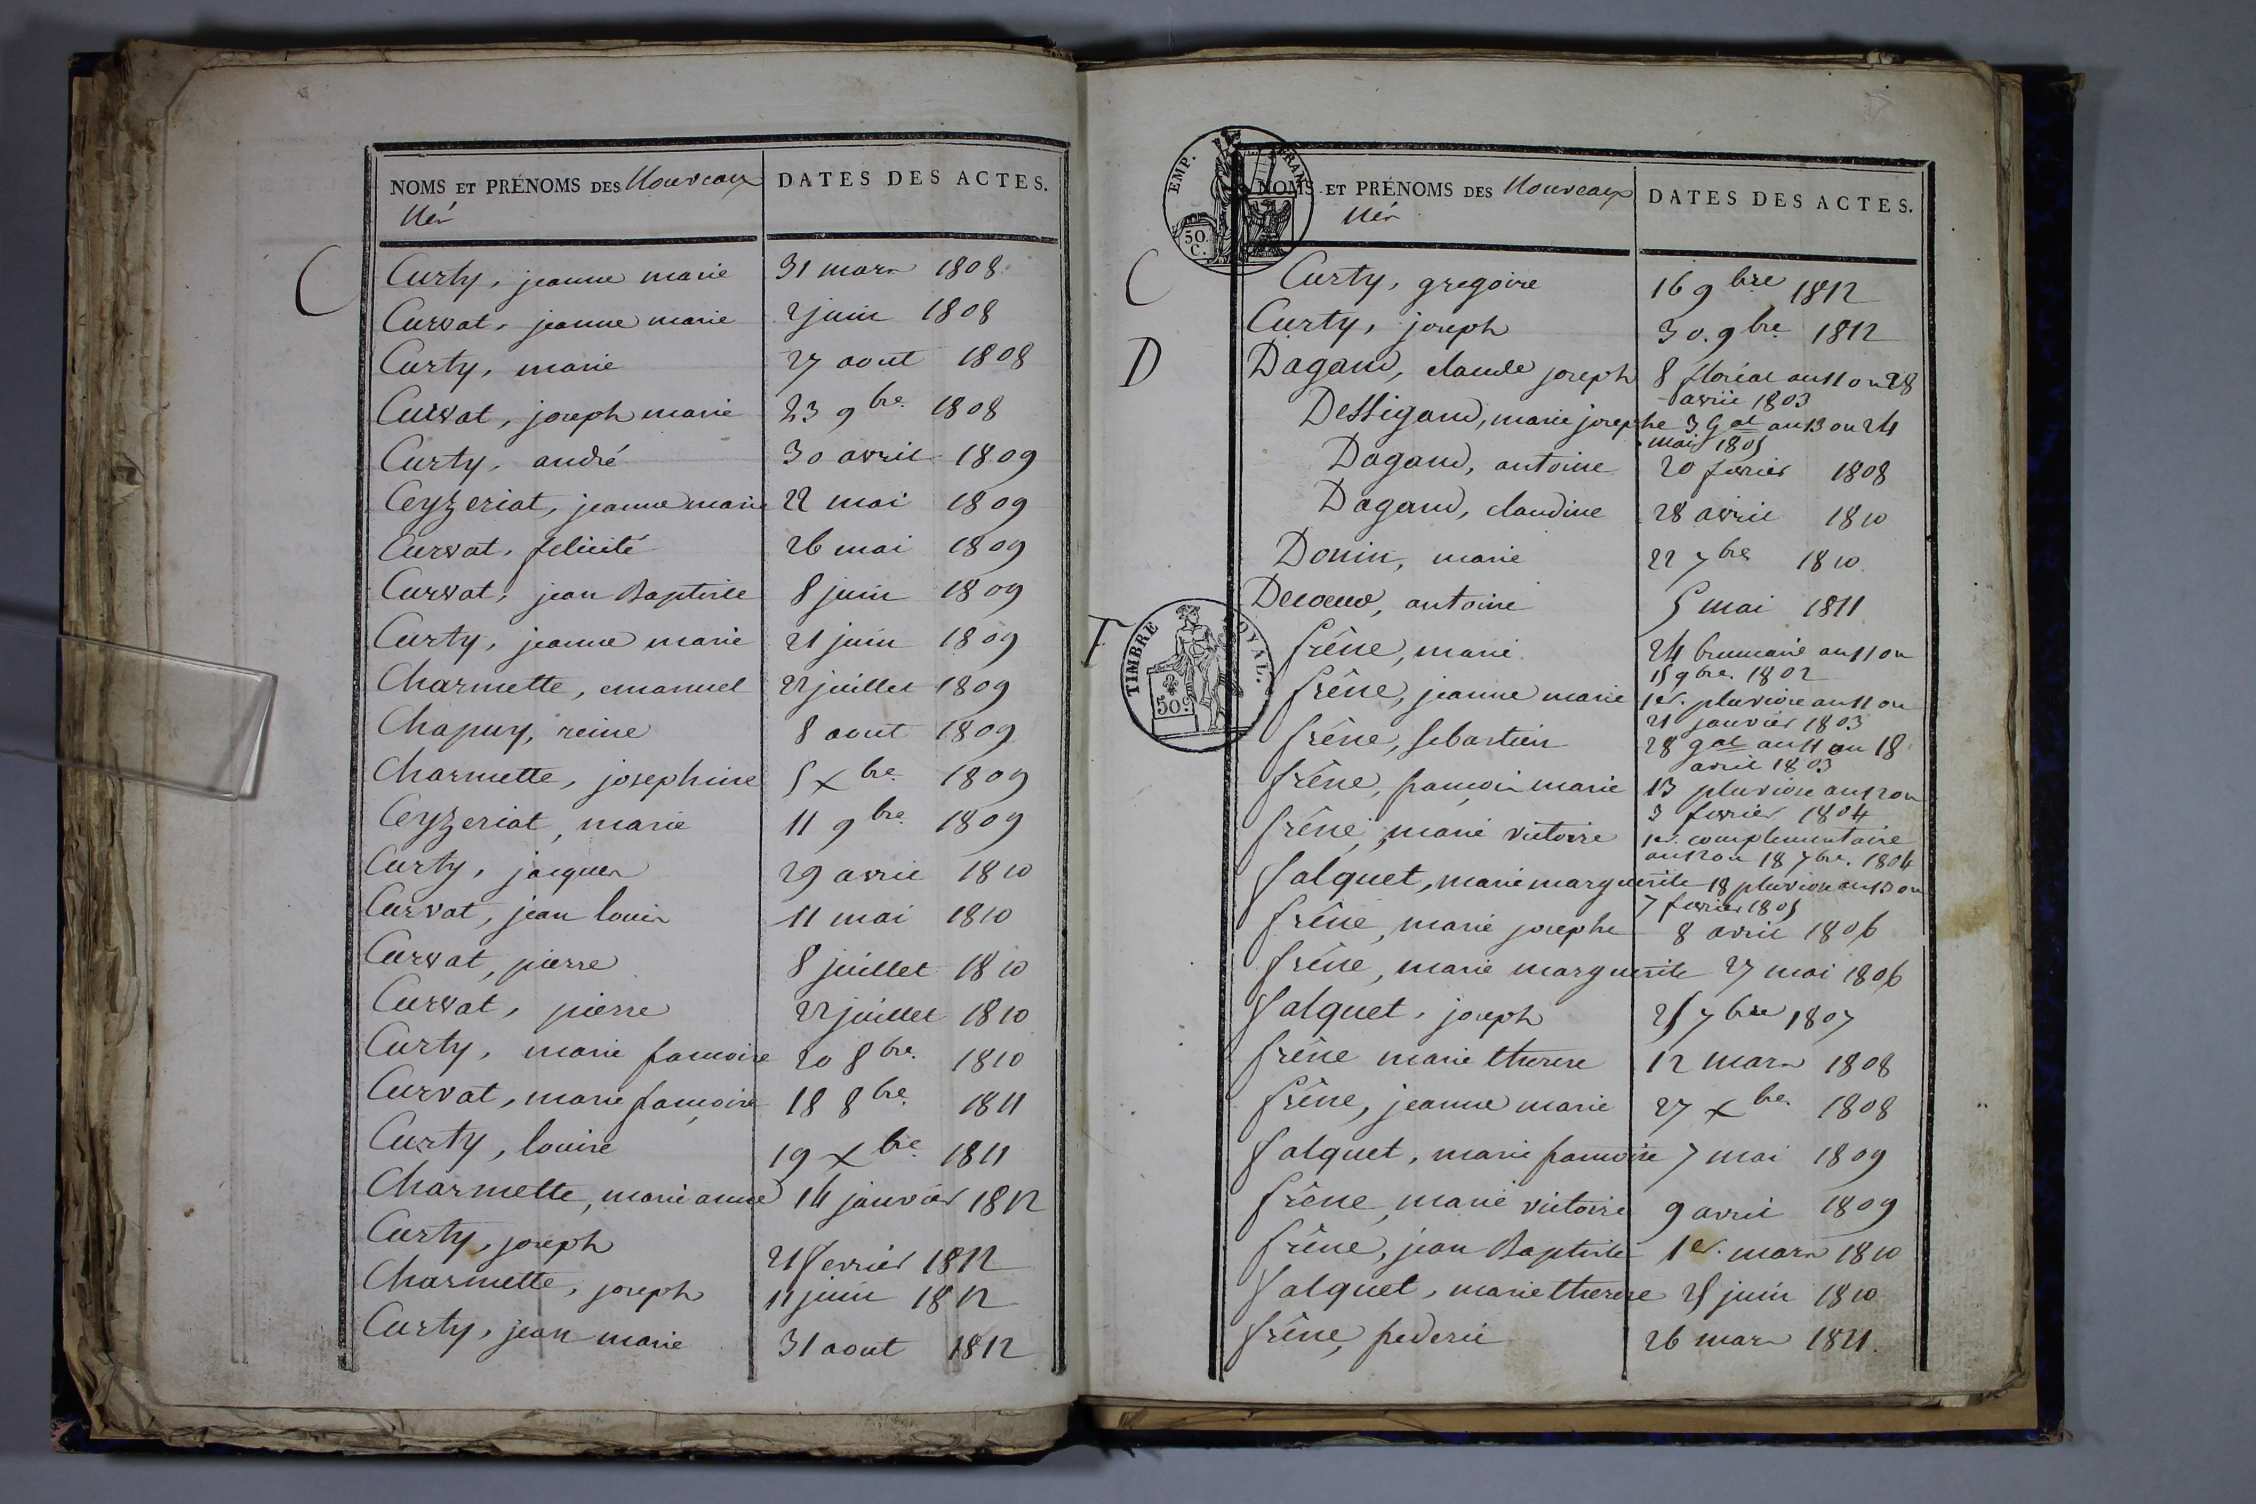 NOMS ET PRÉNOMS DES Nouveaux DATES DES ACTES.
Nés
C
Curty, jeanne marie 31 mars 1808
Curvat, jeanne marie 2 juin 1808
Curty, marie 27 aout 1808
Curvat, joseph marie 23 9bre 1808
Curty, andré 30 avril 1809
Ceyzeriat, jeanne marie 22 mai 1809
Curvat, felicité 26 mai 1809
Curvat, jean Baptiste 8 juin 1809
Curty, jeanne marie 21 juin 1809
Charmette, emanuel 22 juillet 1809
Chapuy, reine 8 aout 1809
Charmette, josephine 5 Xbre 1809
Ceyzeriat, marie 11 9bre 1809
Curty, jacques 29 avril 1810
Curvat, jean louis 11 mai 1810
Curvat, pierre 8 juillet 1810
Curvat, pierre 22 juillet 1810
Curty, marie francoise 20 8bre 1810
Curvat, marie françoise 18 8bre 1811
Curty, louise 19 Xbre 1811
Charmette, marie anne 14 janvier 1812
Curty, joseph 21 fevrier 1812
Charmette, joseph 11 juin 1812
Curty, jean marie 31 aout 1812
EMP. FRAN.
50. C.
NOMS ET PRÉNOMS DES Nouveaux DATES DES ACTES.
Nés
C
Curty, gregoire 16 9bre 1812
Curty, joseph 30. 9bre 1812
D
Dagand, claude joseph 8 floréal an 11 ou 28
avril 1803
Dessigaud, marie josephe 3 Gal an 13 ou 24
mars 1805
Dagand, antoine 20 fevrier 1808
Dagand, claudine 28 avril 1810
Donin, marie 22 7bre 1810
Decoeud, antoine 5 mai 1811
F
TIMBRE ROYAL.
50c
frêne, marie 24 brumaire an 11 ou
15 9bre. 1802
frêne, jeanne marie 1er. pluviose an 11 ou
21 janvier 1803
frêne, sebastien 28 gal an 11 ou 18
avril 1803
frêne, françois marie 13 pluviose an 12 ou
3 fevrier 1804
frêne, marie victoire 1er. complementaire
an 12 ou 18 7bre. 1804
falquet, marie marguerite 18 pluviose an 13 ou
7 fevrier 1805
frêne, marie josephe 8 avril 1806
frêne, marie marguerite 27 mai 1806
falquet, joseph 25 7bre 1807
frêne marie therese 12 mars 1808
frêne, jeanne marie 27 Xbre. 1808
falquet, marie francoise 7 mai 1809
frêne, marie victoire 9 avril 1809
frêne, jean Baptiste 1er. mars 1810
falquet, marie therese 25 juin 1810
frêne, frederic 26 mars 1811.